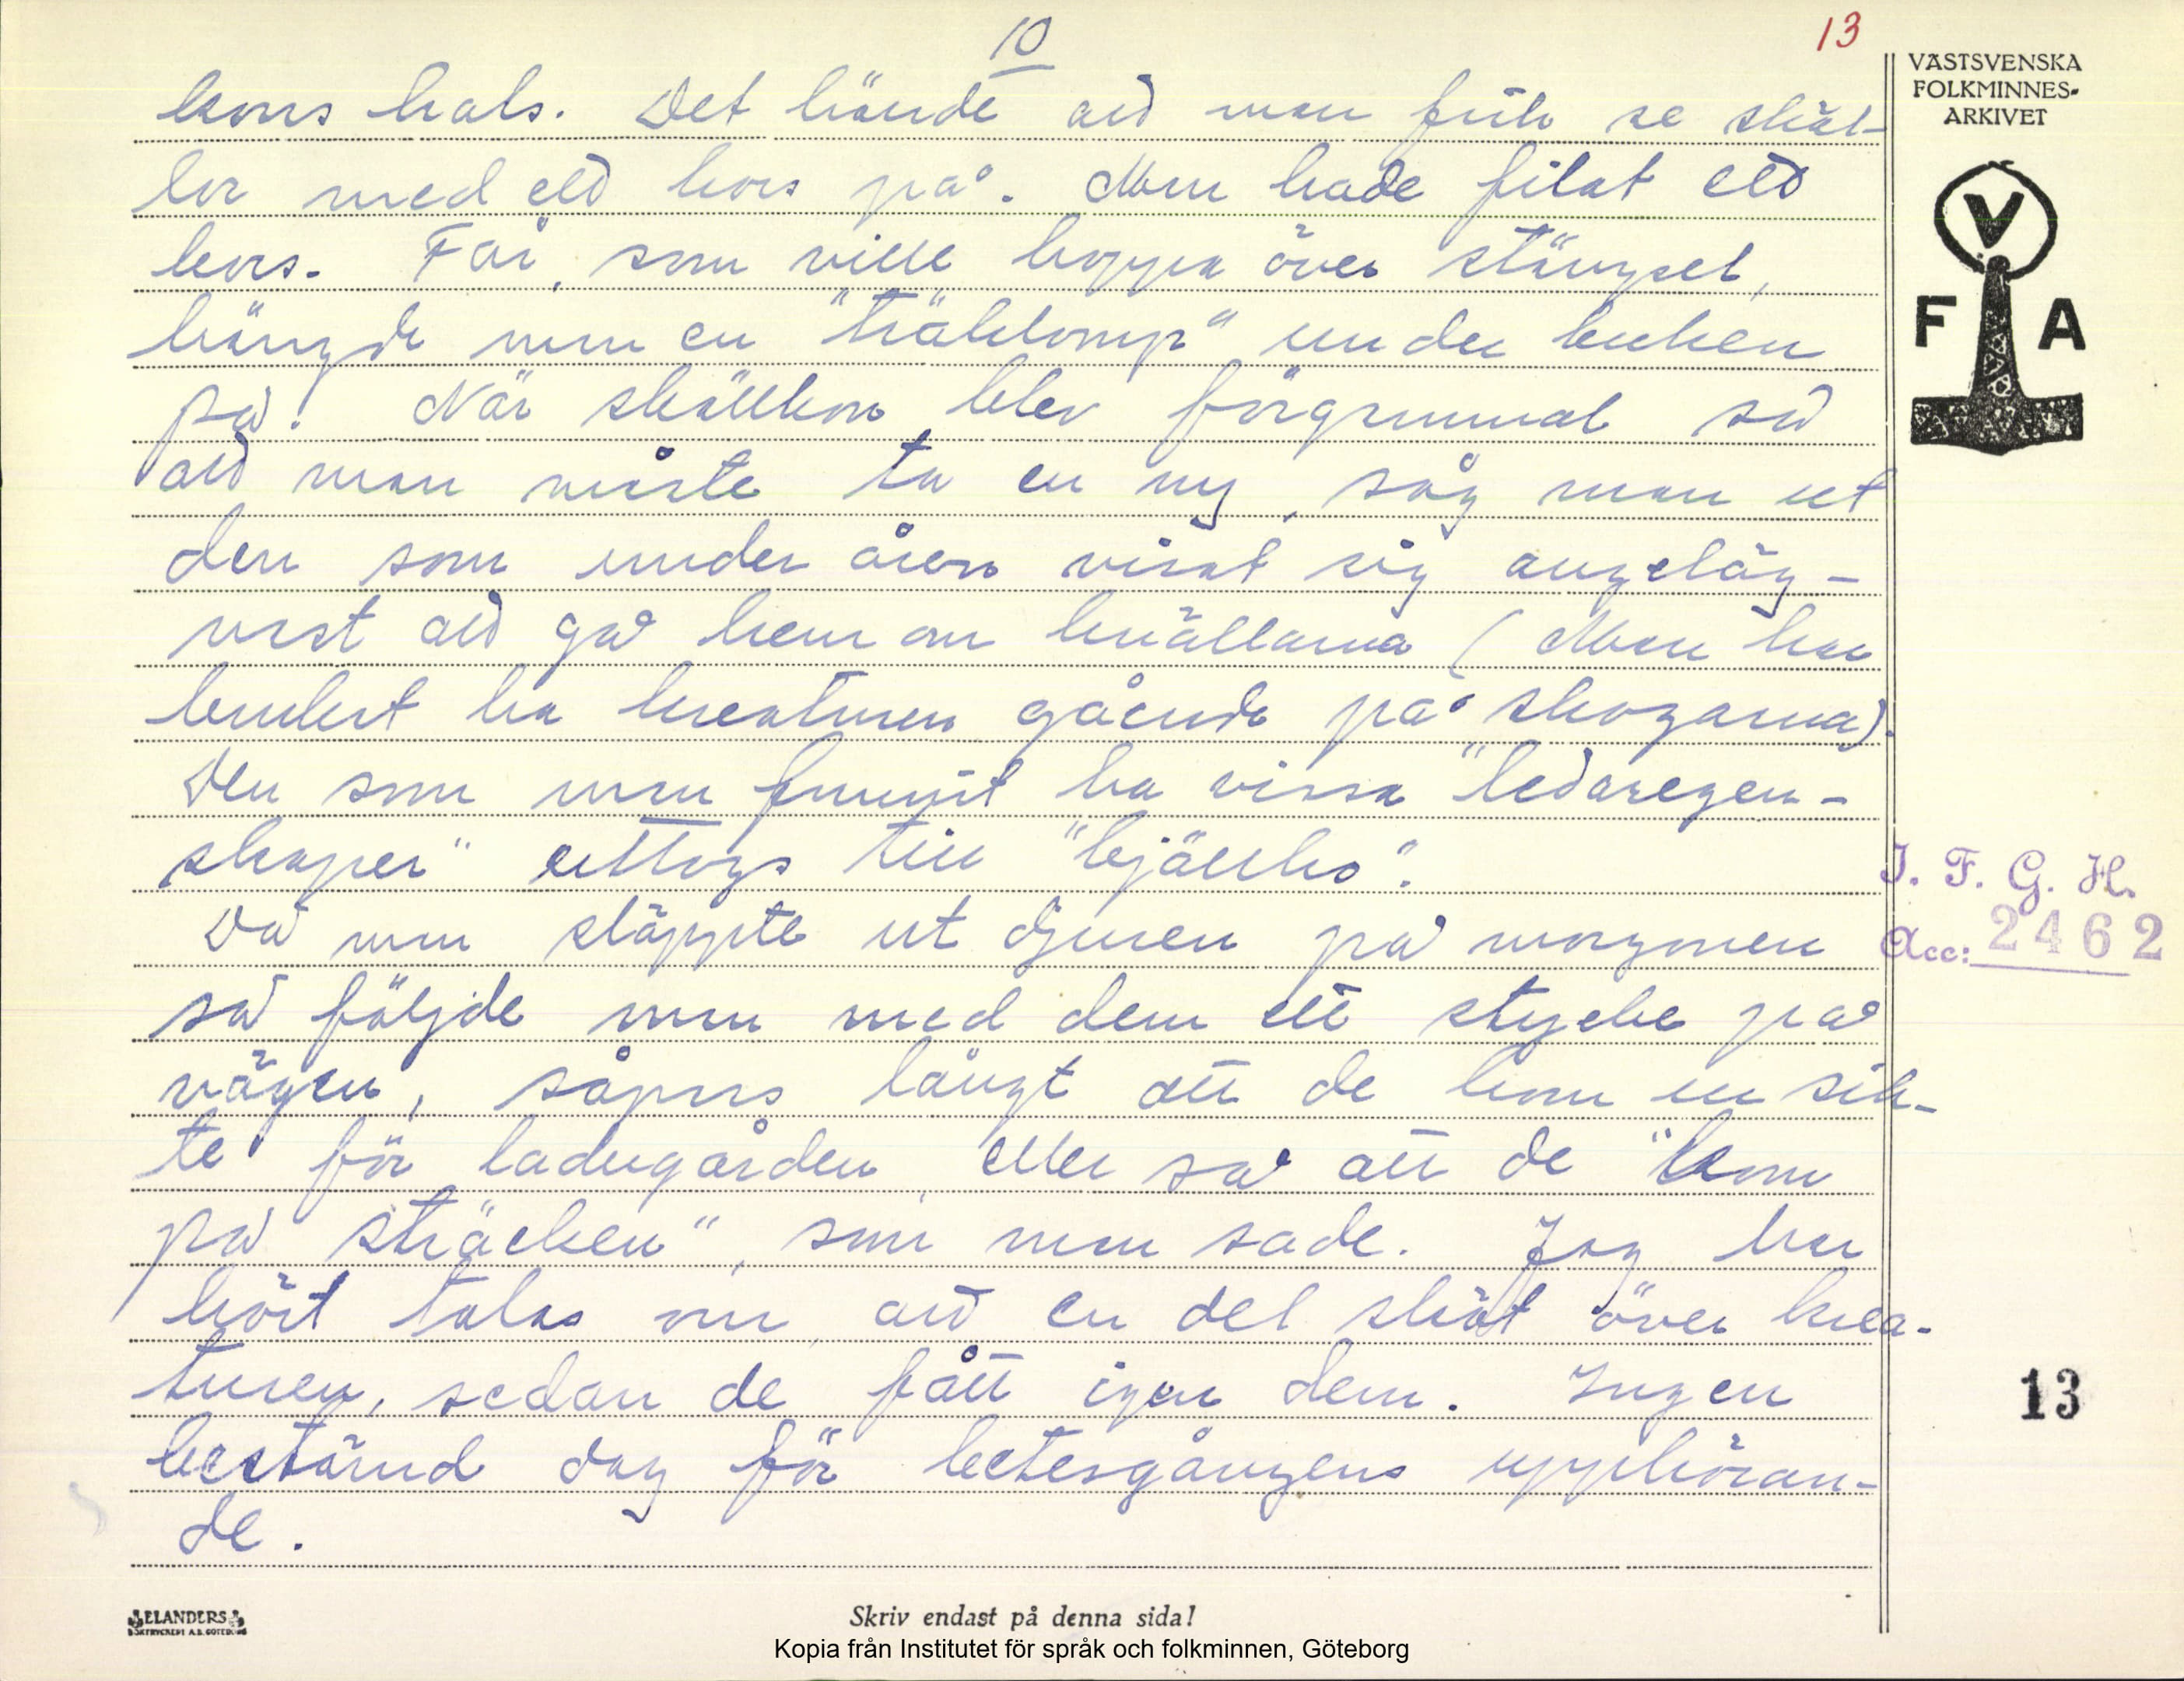 10
13
VÄSTSVENSKA
FOLKMINNES-
ARKIVET
V
F A
kons hals. Det hände att man fick se skäl-
lor med ett kors på. Man hade filat ett
kors. Får, som ville hoppa över stängsel,
hängde man en "träklomp" under buken
på. När skällkon blev förgammal så
att man måste ta en ny, såg man ut
den som under åren visat sig angeläg-
nast att gå hem om kvällarna (Man har
brukat ha kreaturen gående på skogarna).
Den som man funnit ha vissa "ledaregen-
skaper" uttogs till "bjällko".
Då man släppte ut djuren på morgonen
så följde man med dem ett stycke på
vägen, såpass långt att de kom ur sik-
te för ladugården, eller så att de "kom
på sträcken", som man sade. Jag har
hört talas om, att en del sköt över krea-
turen, sedan de fått igen dem. Ingen
bestämd dag för betesgångens upphöran-
de.
I. F. G. H.
Acc: 2462
13
ELANDERS
BOKTRYCKERI A.B. GÖTEBORG
Skriv endast på denna sida!
Kopia från Institutet för språk och folkminnen, Göteborg